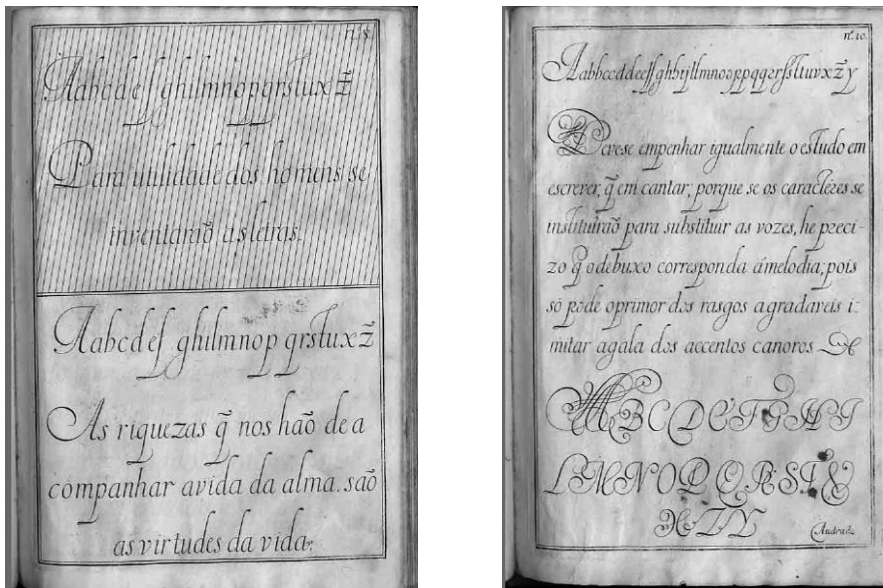 n.8.
Aabcdeſ ghilmnopqrstuxz̃
Para utilidade dos homens se
inventaraõ as letras.
Aabcdeſ ghilmnop qrstuxz̃
As riquezas q̃ nos haõ de a
companhar avida da alma. saõ
as virtudes da vida.
n.10.
Aabbccddeeſſghhijllmnooppqqrrſstuvxz̃y
Devese empenhar igualmente o estudo em
escrever, q̃ em cantar; porque se os caractéres se
instituiraõ para substituir as vozes, he preci-
zo q̃ odebuxo corresponda ámelodia; pois
só pode oprimor dos rasgos agradaveis i:
mitar agala dos accentos canoros
ABCDEFGHI
LMNOPQRST&
XZY
Andrade